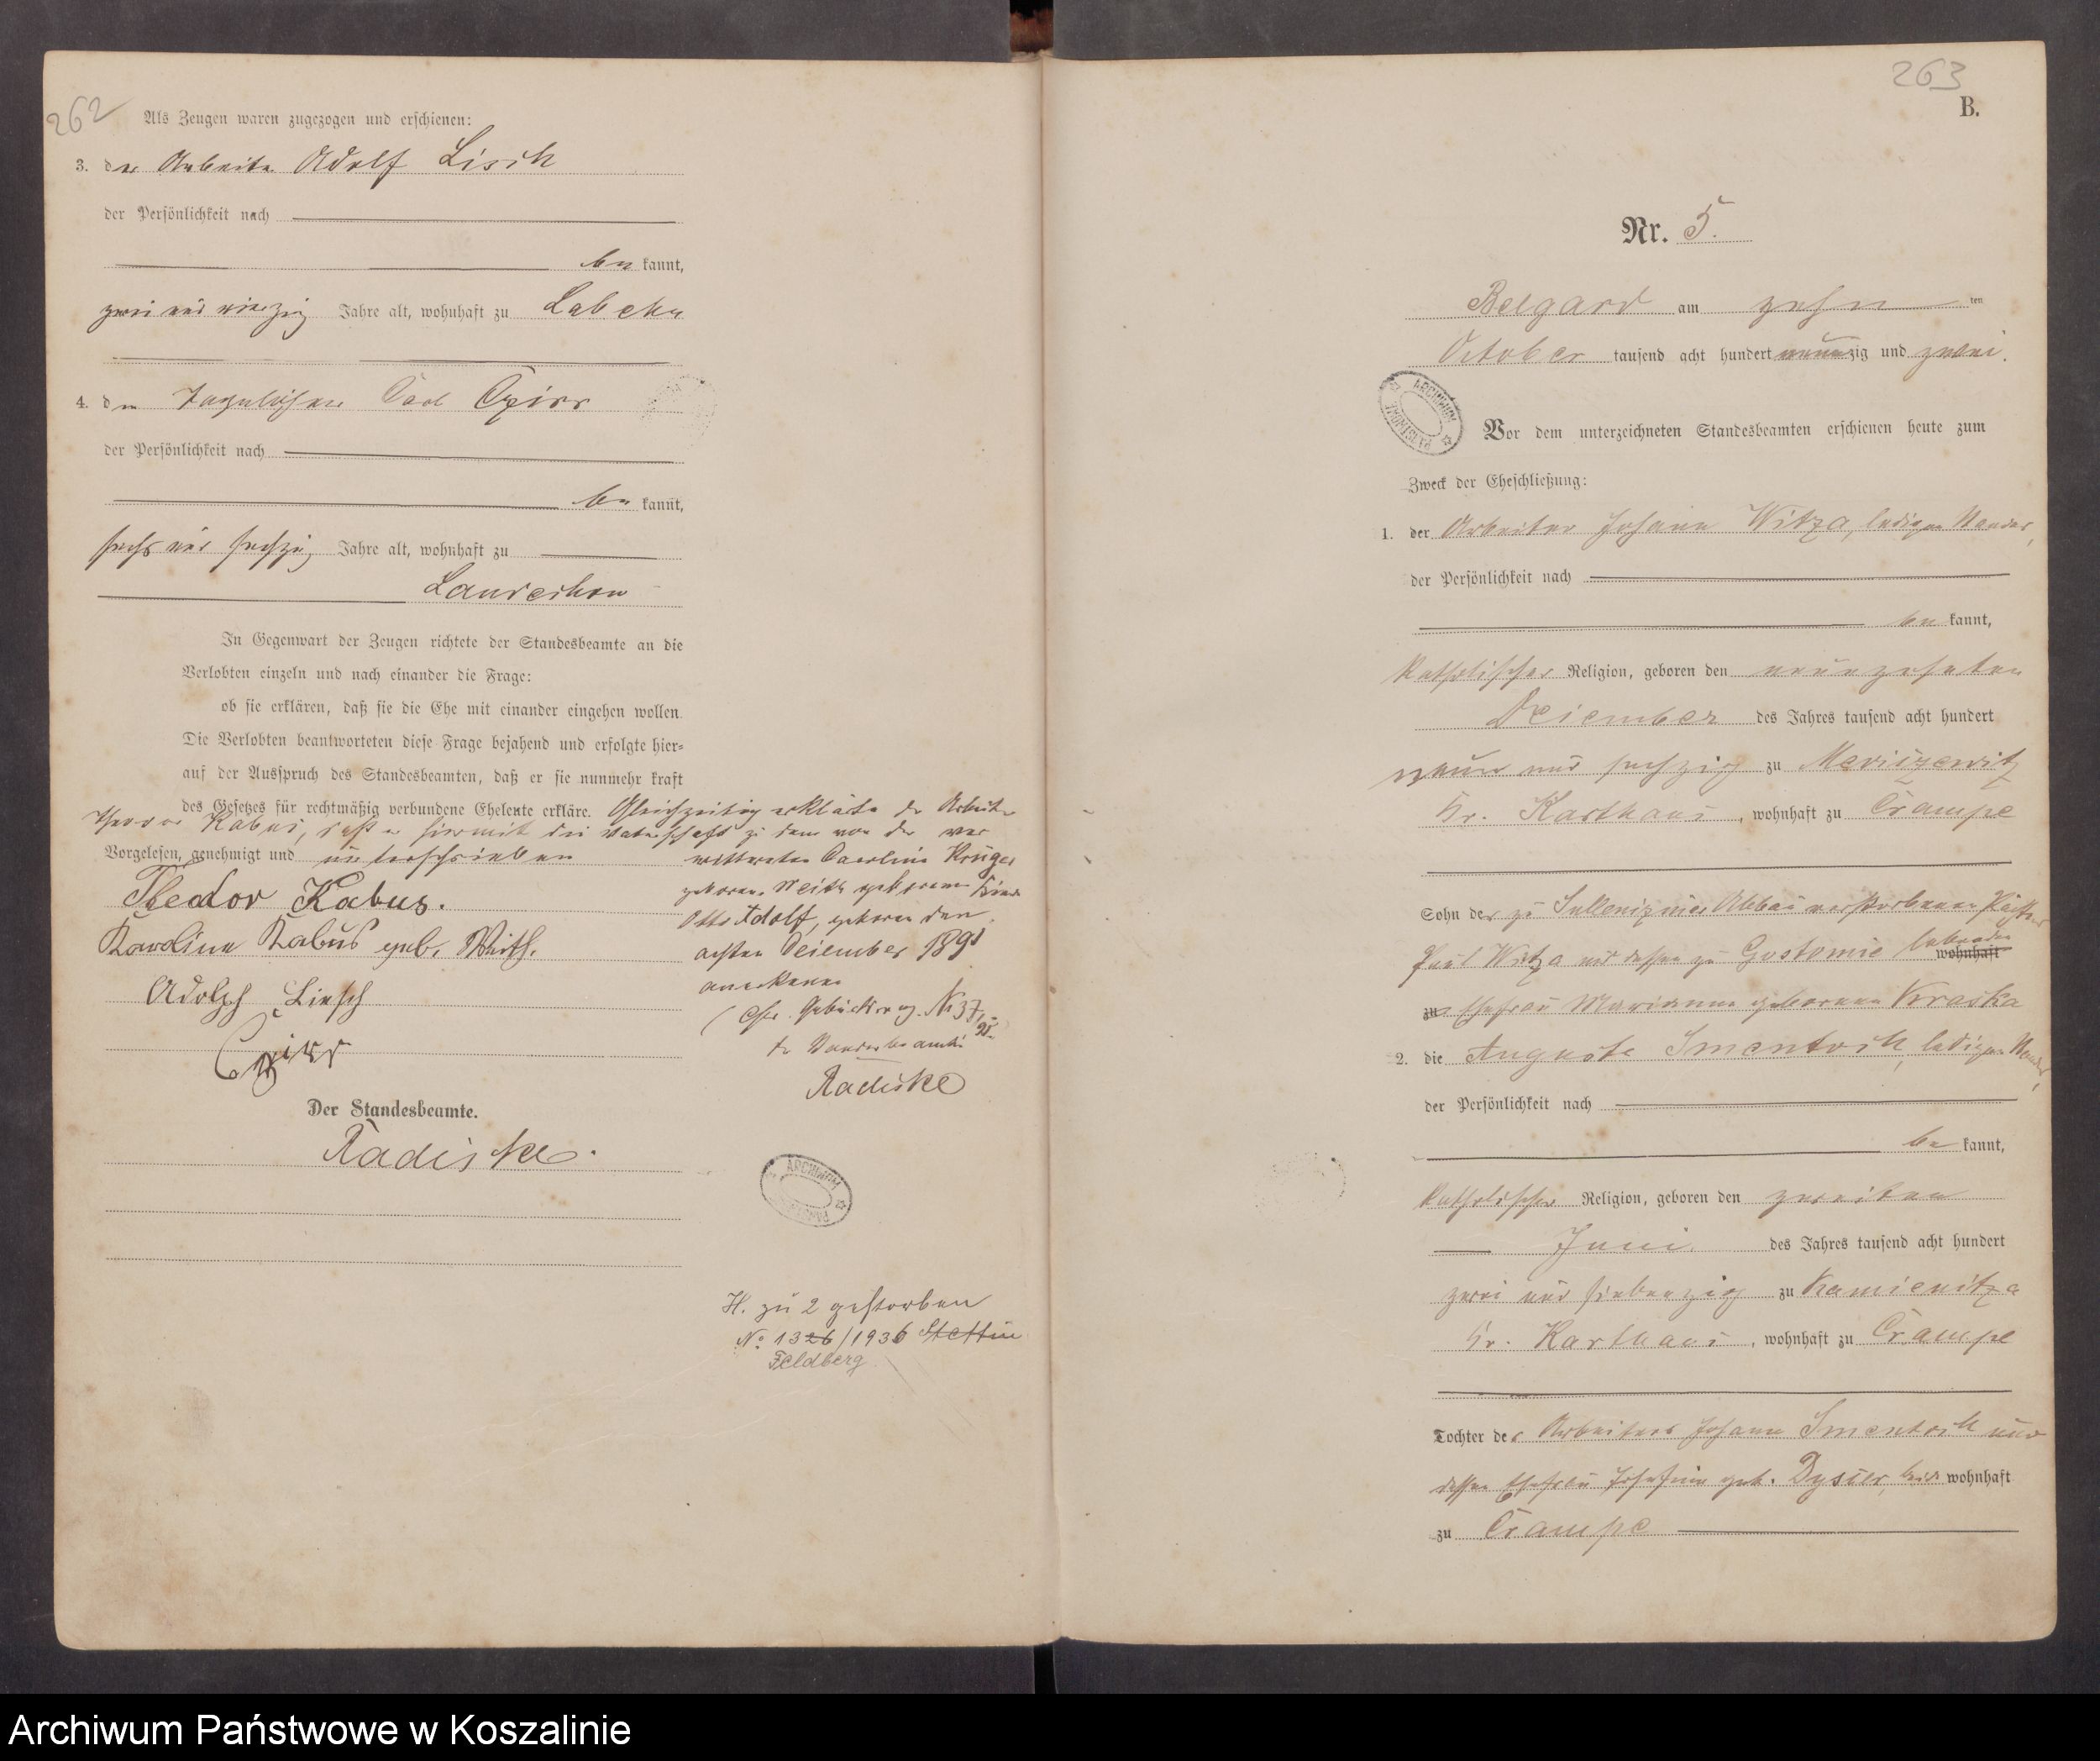 262
Als Zeugen waren zugezogen und erschienen:
3. der Arbeiter Adolf Lisch
der Persönlichkeit nach
be kannt,
zwei und vierzig Jahre alt, wohnhaft zu Labehn
4. den Tagelöhner Carl
der Persönlichkeit nach
be kannt,
sechs und sechzig Jahre alt, wohnhaft zu
Landechow
In Gegenwart der Zeugen richtete der Standesbeamte an die
Verlobten einzeln und nach einander die Frage:
ob sie erklären, daß sie die Ehe mit einander eingehen wollen.
Die Verlobten beantworteten diese Frage bejahend und erfolgte hier-
auf der Ausspruch des Standesbeamten, daß er sie nunmehr kraft
des Gesetzes für rechtmäßig verbundene Eheleute erkläre. Gleichzeitig erklärte der Arbeiter
Theodor Kabus, daß er hiermit die Vaterschaft zu dem von der ver
Vorgelesen, genehmigt und unterschrieben
wittweten Caroline Krüger
geborene geborenen Kinde
Otto Adolf, geboren den
achten Dezember 1891
anerkenne
Nr 37/91.
Der Standesbeamte
Radiske
Theodor Kabus.
Karoline Kabus geb.
Adolph Liesch
Der Standesbeamte.
Radiske.
ARCHIWUM PAŃSTWOWE
H. zu 2 gestorben
No 1326/1936 Stettin
Feldberg
263
B.
Nr. 5.
Belgard am zehn ten
October tausend acht hundert neunzig und zwei.
ARCHIWUM PAŃSTWOWE
Vor dem unterzeichneten Standesbeamten erschienen heute zum
Zweck der Eheschließung:
1. der Arbeiter Johann Witza, ledigen Standes,
der Persönlichkeit nach
be kannt,
katholischer Religion, geboren den neunzehnten
Dezember des Jahres tausend acht hundert
neun und sechzig zu
Kr. Karthaus, wohnhaft zu Crampe
Sohn des zu Abbau verstorbenen
Paul Witza und dessen zu Gostomie lebenden wohnhaft
zu Ehefrau Marianna geborenen Kraska
2. die Auguste Smentoch, ledigen Standes,
der Persönlichkeit nach
be kannt,
katholischer Religion, geboren den zweiten
Juni des Jahres tausend acht hundert
zwei und siebenzig zu Kamienitza
Kr. Karthaus, wohnhaft zu Crampe
Tochter des Arbeiters Johann Smentoch und
dessen Ehefrau Josefine geb. wohnhaft
zu Crampe
Archiwum Państwowe w Koszalinie